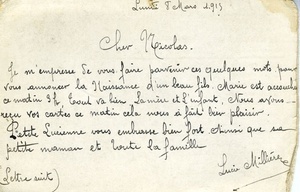 Lunéville 8 Mars 1915
Cher Nicolas.
Je m'empresse de vous faire parvenir ces quelques mots pour
vous annoncer la Naissance d'un beau fils. Marie est accouchée
ce matin 5h, tout va bien Lamère et l'enfant. Nous avons
reçu vos cartes ce matin cela nous à fait bien plaisir.
Petite Lucienne vous embrasse bien fort Ainsi que sa
petite maman et toute la famille
Lucie Millière
(Lettre suit)